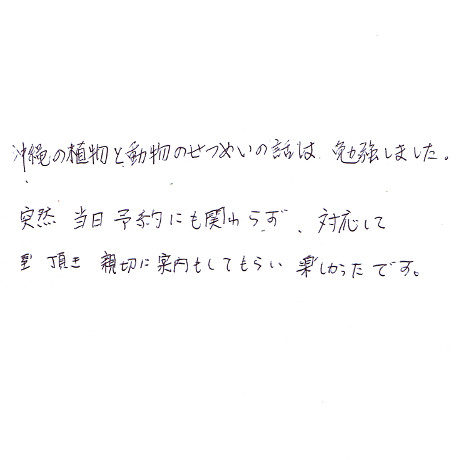 沖縄の植物と動物のせつめいの話は 勉強しました。
突然 当日予約にも関わらず、対応して
頂き 親切に案内もしてもらい 楽しかったです。